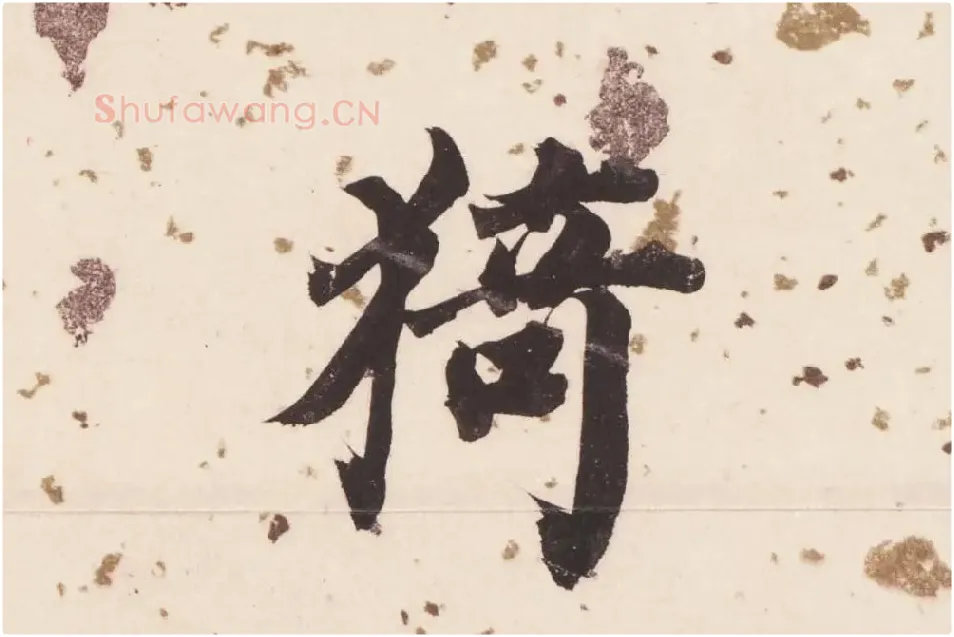 Shufawang.CN
猗